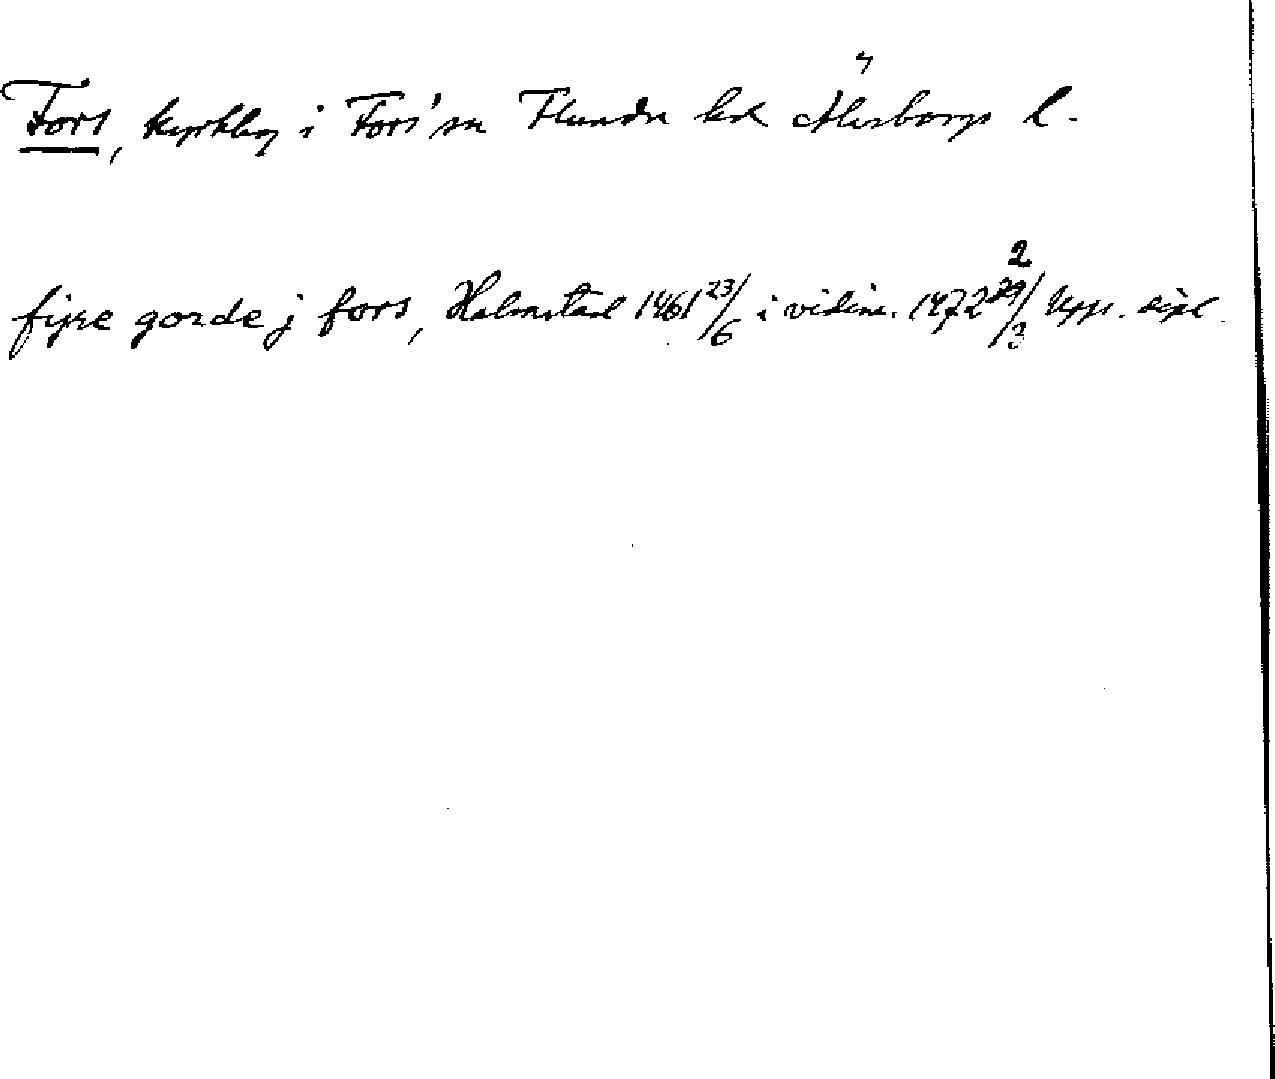 Fors, kyrkby i Fors' sn Flundre hd Älvsborgs l.
fiyre gorde j fors, Halmstad 1461 23/6 i vidim. 1472 2/3 Upps. dipl.